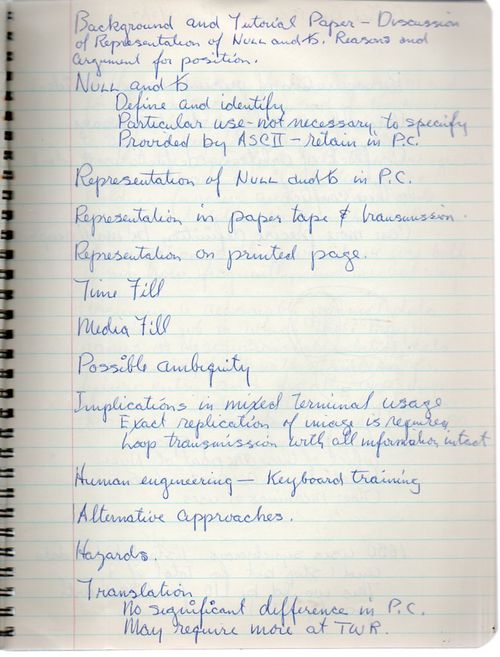 Background and Tutorial Paper – Discussion
of Representation of NULL and ƀ. Reasons and
argument for position.
NULL and ƀ
Define and identify
Particular use – not necessary to specify
Provided by ASCII – retain in P.C.
Representation of NULL and ƀ in P.C.
Representation in paper tape & transmission.
Representation on printed page.
Time Fill
Media Fill
Possible ambiguity
Implications in mixed terminal usage
Exact replication of image is required
Loop transmission with all information intact
Human engineering — Keyboard training
Alternative approaches.
Hazards.
Translation
No significant difference in P.C.
May require more at TWR.